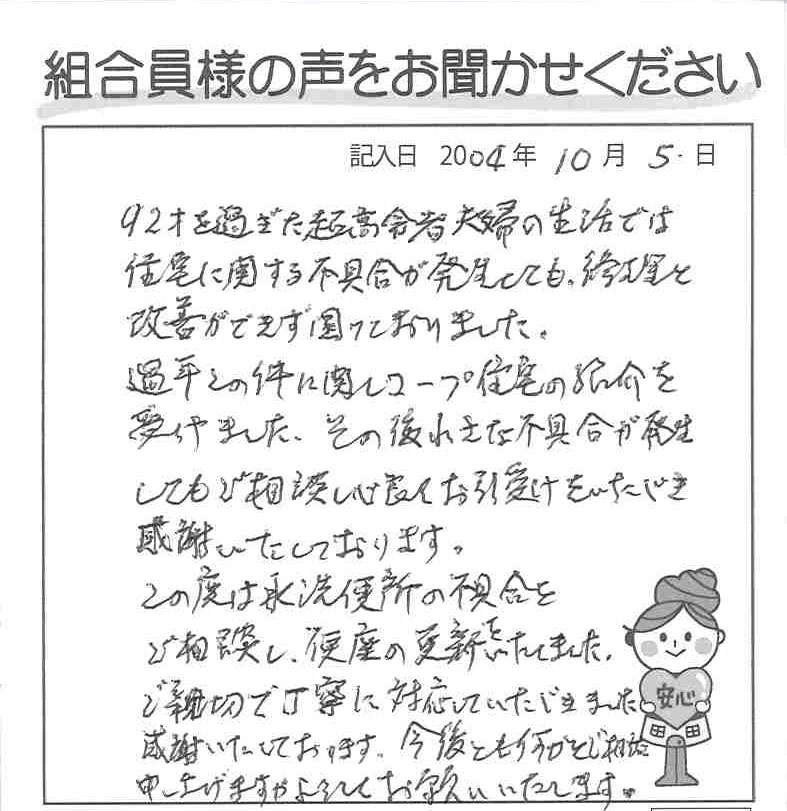 組合員様の声をお聞かせください
記入日 2004年 10月 5日
92才を過ぎた超高令者夫婦の生活では
住宅に関する不具合が発生しても、修理と
改善ができず困っておりました。
過年この件に関しコープ住宅の紹介を
受けました、その後小さな不具合が発生
してもご相談し心良くお引受けをいただき
感謝いたしております。
この度は水洗便所の不具合を
ご相談し、便座の更新をいたしました。
ご親切で丁寧に対応していただきました
感謝いたしております、今後とも何かとご相談
申し上げますがよろしくお願いいたします。
安心